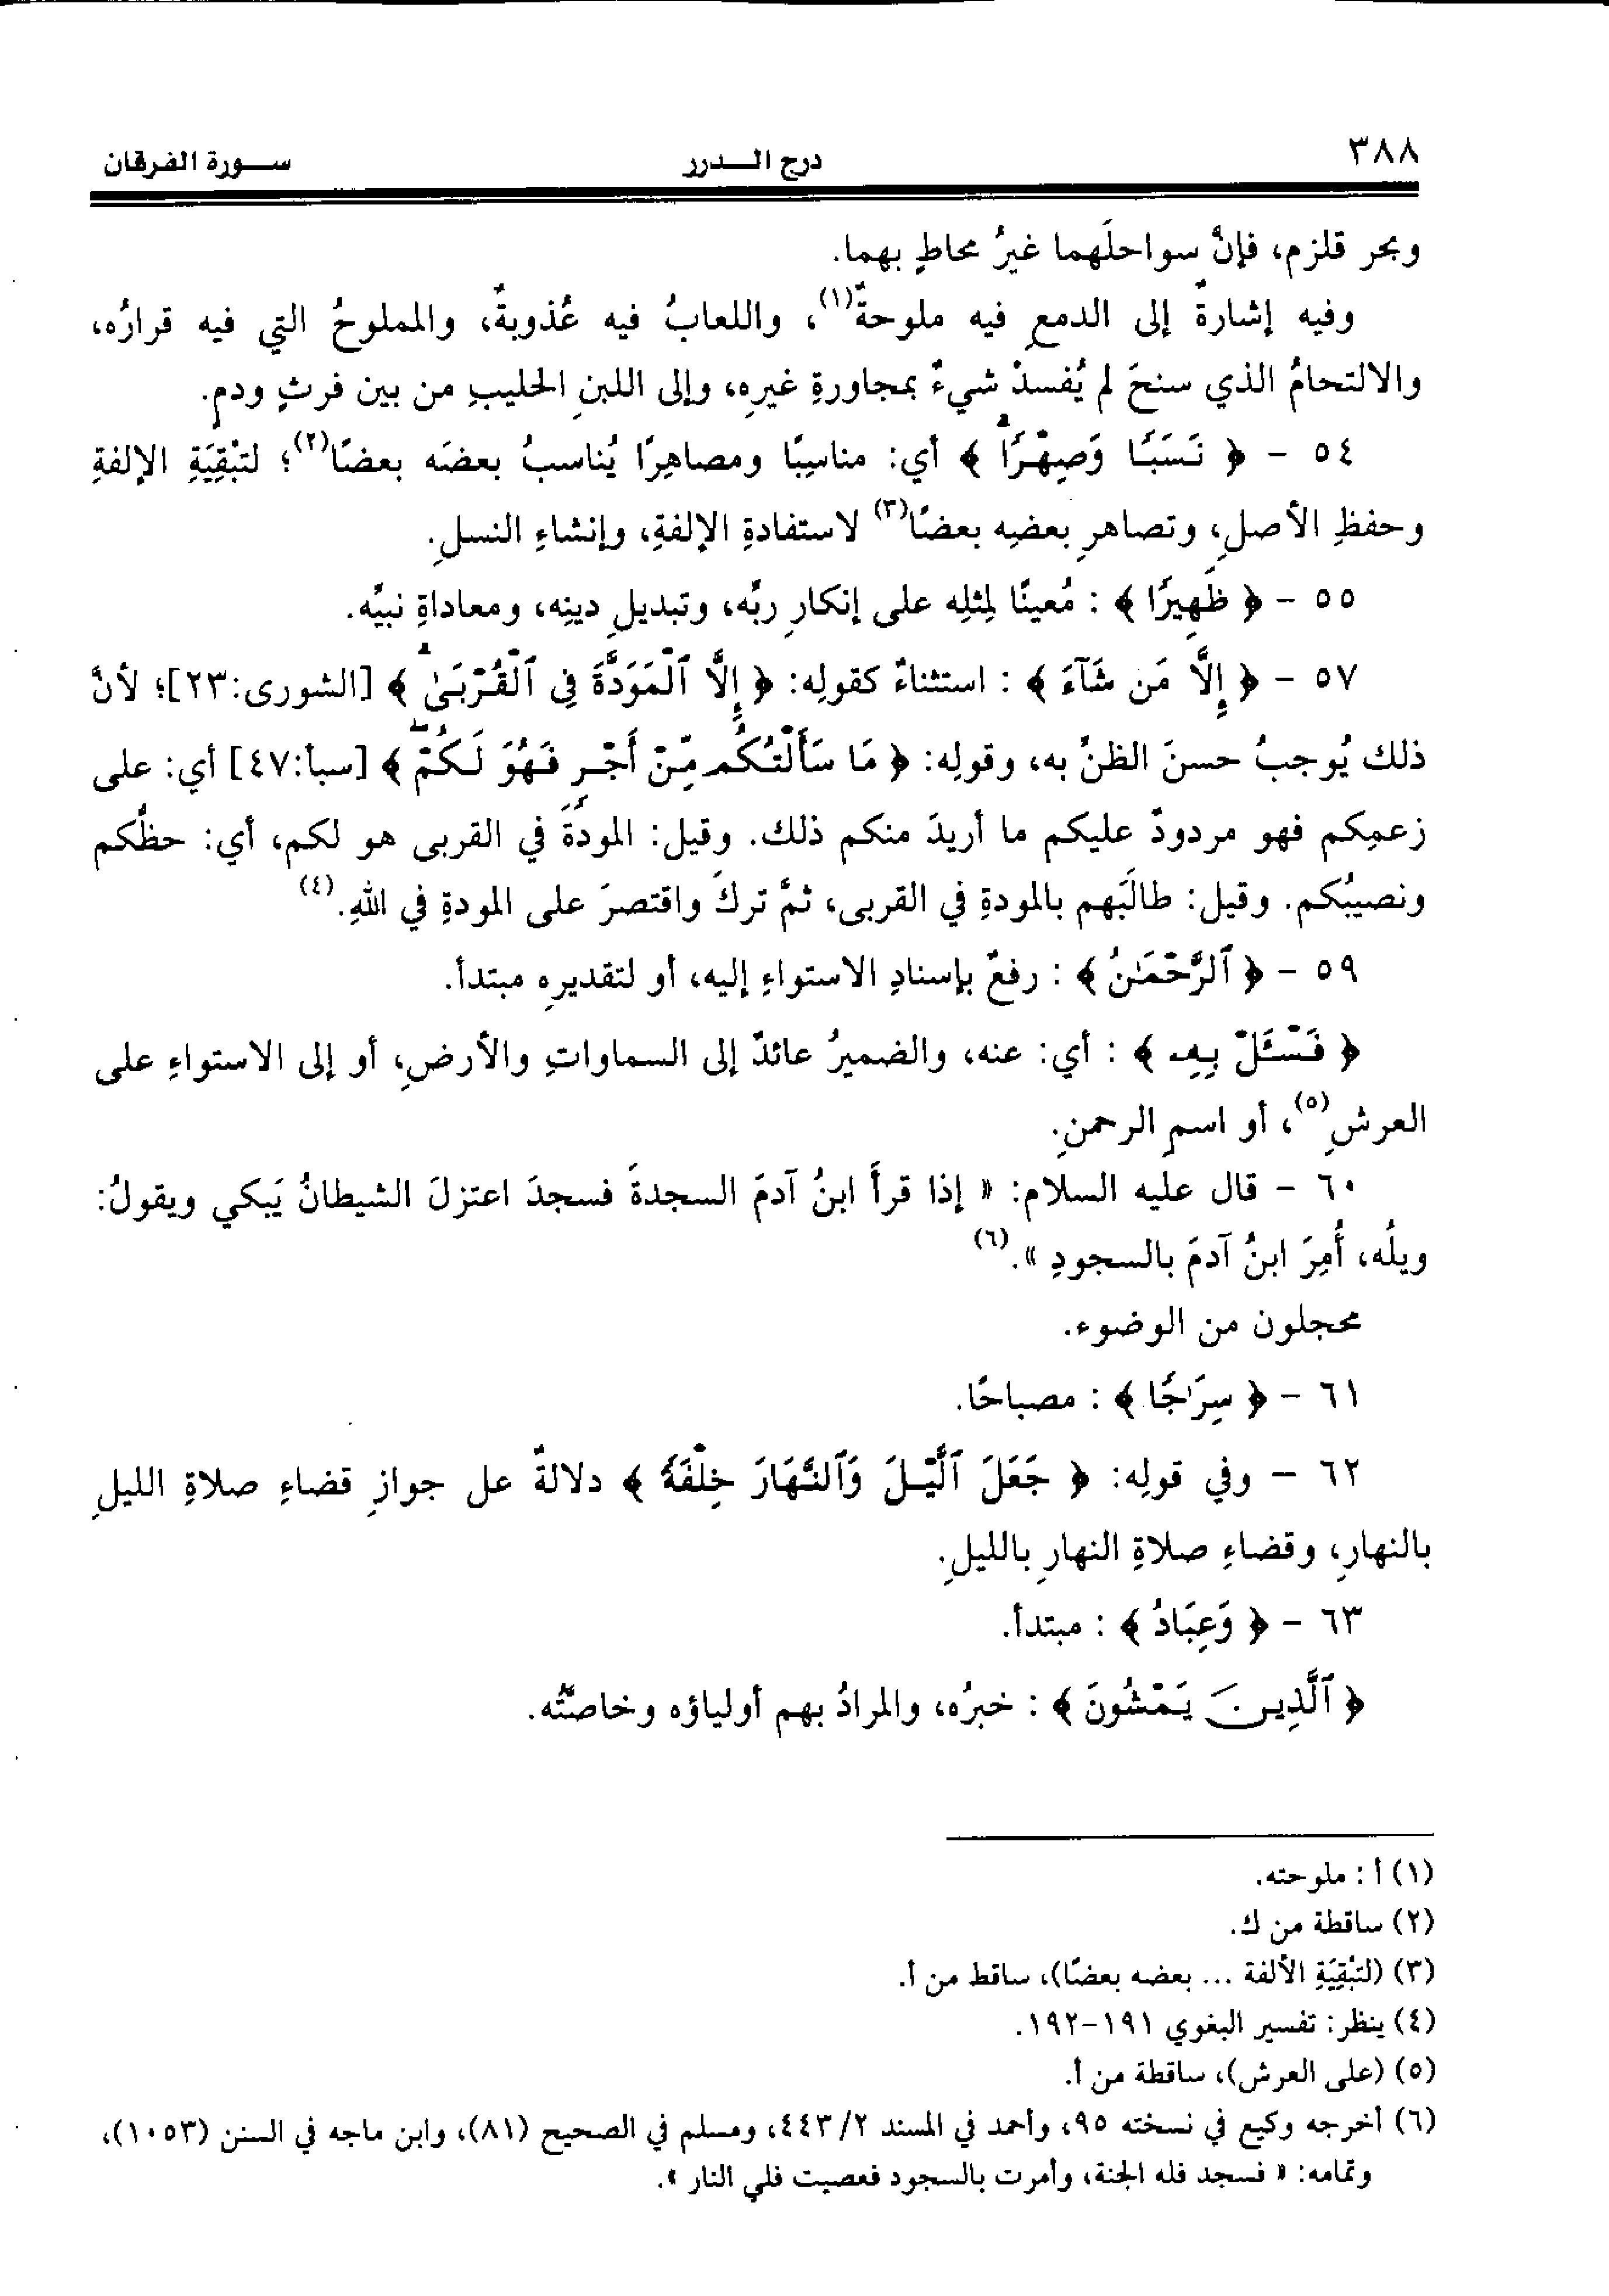 ٣٨٨ درج الـــدرر ســـورة الفرقان
وبحر قلزم، فإنَّ سواحلَهما غيرُ محاطٍ بهما.
وفيه إشارةٌ إلى الدمعِ فيه ملوحةٌ(١)، واللعابُ فيه عُذوبةٌ، والمملوحُ التي فيه قرارُه،
والالتحامُ الذي سنحَ لم يُفسدْ شيءٌ بمجاورةِ غيرِه، وإلى اللبنِ الحليبِ من بين فرثٍ ودمٍ.
٥٤ - ﴿ نَسَبًا وَصِهْرًا ﴾ أي: مناسِبًا ومصاهِرًا يُناسبُ بعضَه بعضًا(٢)؛ لتبْقِيَةِ الإلفةِ
وحفظِ الأصلِ، وتصاهرِ بعضِه بعضًا(٣) لاستفادةِ الإلفةِ، وإنشاءِ النسلِ.
٥٥ - ﴿ ظَهِيرًا ﴾ : مُعينًا لِمثلِه على إنكارِ ربِّه، وتبديلِ دينِه، ومعاداةِ نبيِّه.
٥٧ - ﴿ إِلَّا مَن شَآءَ ﴾ : استثناءٌ كقولِه: ﴿ إِلَّا ٱلْمَوَدَّةَ فِى ٱلْقُرْبَىٰ ﴾ [الشورى:٢٣]؛ لأنَّ
ذلك يُوجبُ حسنَ الظنِّ به، وقولِه: ﴿ مَا سَأَلْتُكُم مِّنْ أَجْرٍ فَهُوَ لَكُمْ ﴾ [سبأ:٤٧] أي: على
زعمِكم فهو مردودٌ عليكم ما أريدَ منكم ذلك. وقيل: المودَّةُ في القربى هو لكم، أي: حظُّكم
ونصيبُكم. وقيل: طالَبَهم بالمودةِ في القربى، ثمَّ تركَ واقتصرَ على المودةِ في اللهِ.(٤)
٥٩ - ﴿ ٱلرَّحْمَـٰنُ ﴾ : رفعٌ بإسنادِ الاستواءِ إليه، أو لتقديرِهِ مبتدأ.
﴿ فَسْـَٔلْ بِهِۦ ﴾ : أي: عنه، والضميرُ عائدٌ إلى السماواتِ والأرضِ، أو إلى الاستواءِ على
العرشِ(٥)، أو اسمِ الرحمنِ.
٦٠ - قال عليه السلام: « إذا قرأَ ابنُ آدمَ السجدةَ فسجدَ اعتزلَ الشيطانُ يَبكي ويقولُ:
ويلُه، أُمِرَ ابنُ آدمَ بالسجودِ ».(٦)
محجلون من الوضوء.
٦١ - ﴿ سِرَٰجًا ﴾ : مصباحًا.
٦٢ - وفي قولِه: ﴿ جَعَلَ ٱلَّيْلَ وَٱلنَّهَارَ خِلْفَةً ﴾ دلالةٌ عل جوازِ قضاءِ صلاةِ الليلِ
بالنهارِ، وقضاءِ صلاةِ النهارِ بالليلِ.
٦٣ - ﴿ وَعِبَادُ ﴾ : مبتدأ.
﴿ ٱلَّذِينَ يَمْشُونَ ﴾ : خبرُه، والمرادُ بهم أولياؤه وخاصَّتُه.
(١) أ : ملوحته.
(٢) ساقطة من ك.
(٣) (لتبْقِيَةِ الألفة ... بعضه بعضًا)، ساقط من أ.
(٤) ينظر: تفسير البغوي ١٩١-١٩٢.
(٥) (على العرش)، ساقطة من أ.
(٦) أخرجه وكيع في نسخته ٩٥، وأحمد في المسند ٤٤٣/٢، ومسلم في الصحيح (٨١)، وابن ماجه في السنن (١٠٥٣)،
وتمامه: « فسجد فله الجنة، وأمرت بالسجود فعصيت فلي النار ».